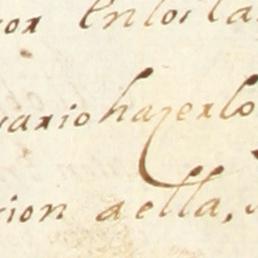 por en los la
vario hazerlo
cion a ella,